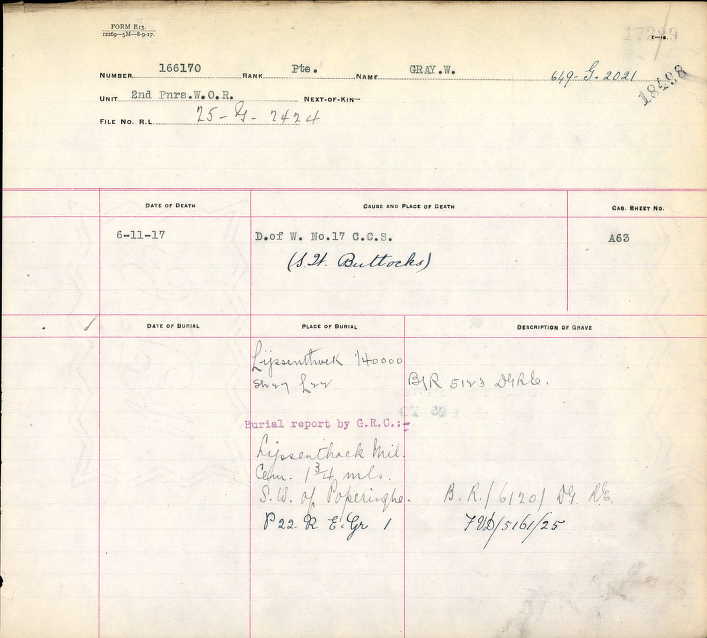 FORM R15.
12269—5M—8-9-17.
NUMBER 166170 RANK Pte. NAME GRAY.W. 649-G-2021
18498
UNIT 2nd Pnrs.W.O.R. NEXT-OF-KIN—
FILE NO. R.L. 25-G-2424
DATE OF DEATH CAUSE AND PLACE OF DEATH CAS. SHEET NO.
6-11-17 D.of W. No.17 C.C.S. A63
(S.W. Buttocks)
DATE OF BURIAL PLACE OF BURIAL DESCRIPTION OF GRAVE
Lijssenthoek 140000
Sh 27 L22 B/R 5123 DGR&E.
Burial report by G.R.C.:-
Lijssenthoek Mil.
Cem. 1 3/4 mls.
S.W. of Poperinghe. B.R./6120/ DG R&E
P 22. R E. Gr 1 7VD/5161/25